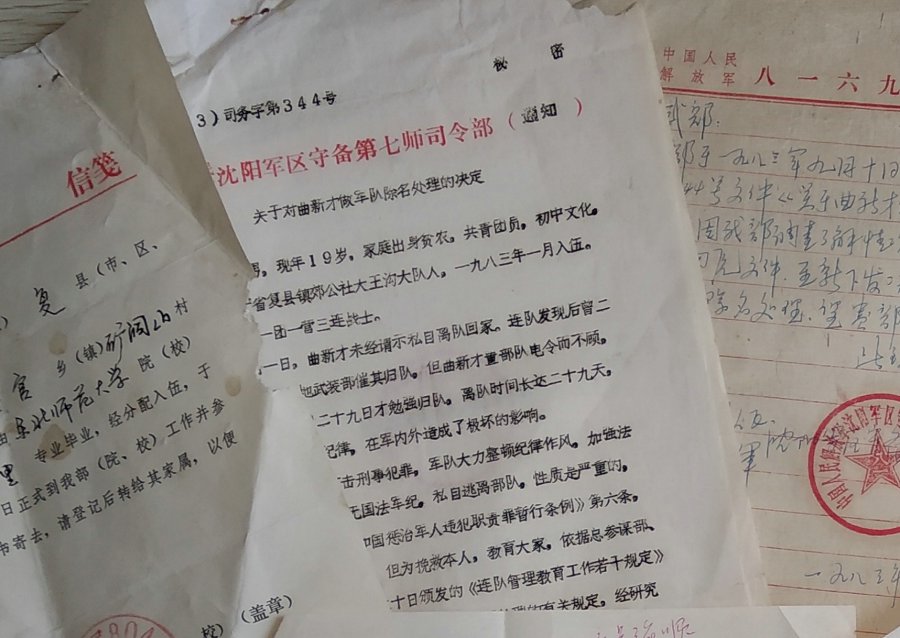 信笺
复 县(市、区、
官 乡(镇)矿洞山村
由东北师范大学院(校)
专业毕业,经分配入伍,于
里
日正式到我部(院、校)工作并参
寄去,请登记后转给其家属,以便
校)(盖章)
秘 密
3)司务字第344号
沈阳军区守备第七师司令部(通知)
关于对曲新才做军队除名处理的决定
男,现年19岁,家庭出身贫农,共青团员,初中文化。
省复县镇郊公社大王沟大队人,一九八三年一月入伍。
一团一营三连战士。
一日,曲新才未经请示私自离队回家,连队发现后留二
地武装部催其归队。但曲新才置部队电令而不顾。
二十九日才勉强归队。离队时间长达二十九天。
纪律,在军内外造成了极坏的影响。
击刑事犯罪,军队大力整顿纪律作风,加强法
无国法军纪。私自逃离部队。性质是严重的。
中国惩治军人违犯职责罪暂行条例》第六条。
但为挽救本人,教育大家。依据总参谋部、
十日颁发的《连队管理教育工作若干规定》
的有关规定,经研究
中国人民
解放军 八一六九
武部:
部于一九八三年九月十日
44号文件《关于曲新才
因我部调查了解情
文件,重新下发
除名处理,望贵部
此致
一九八三年